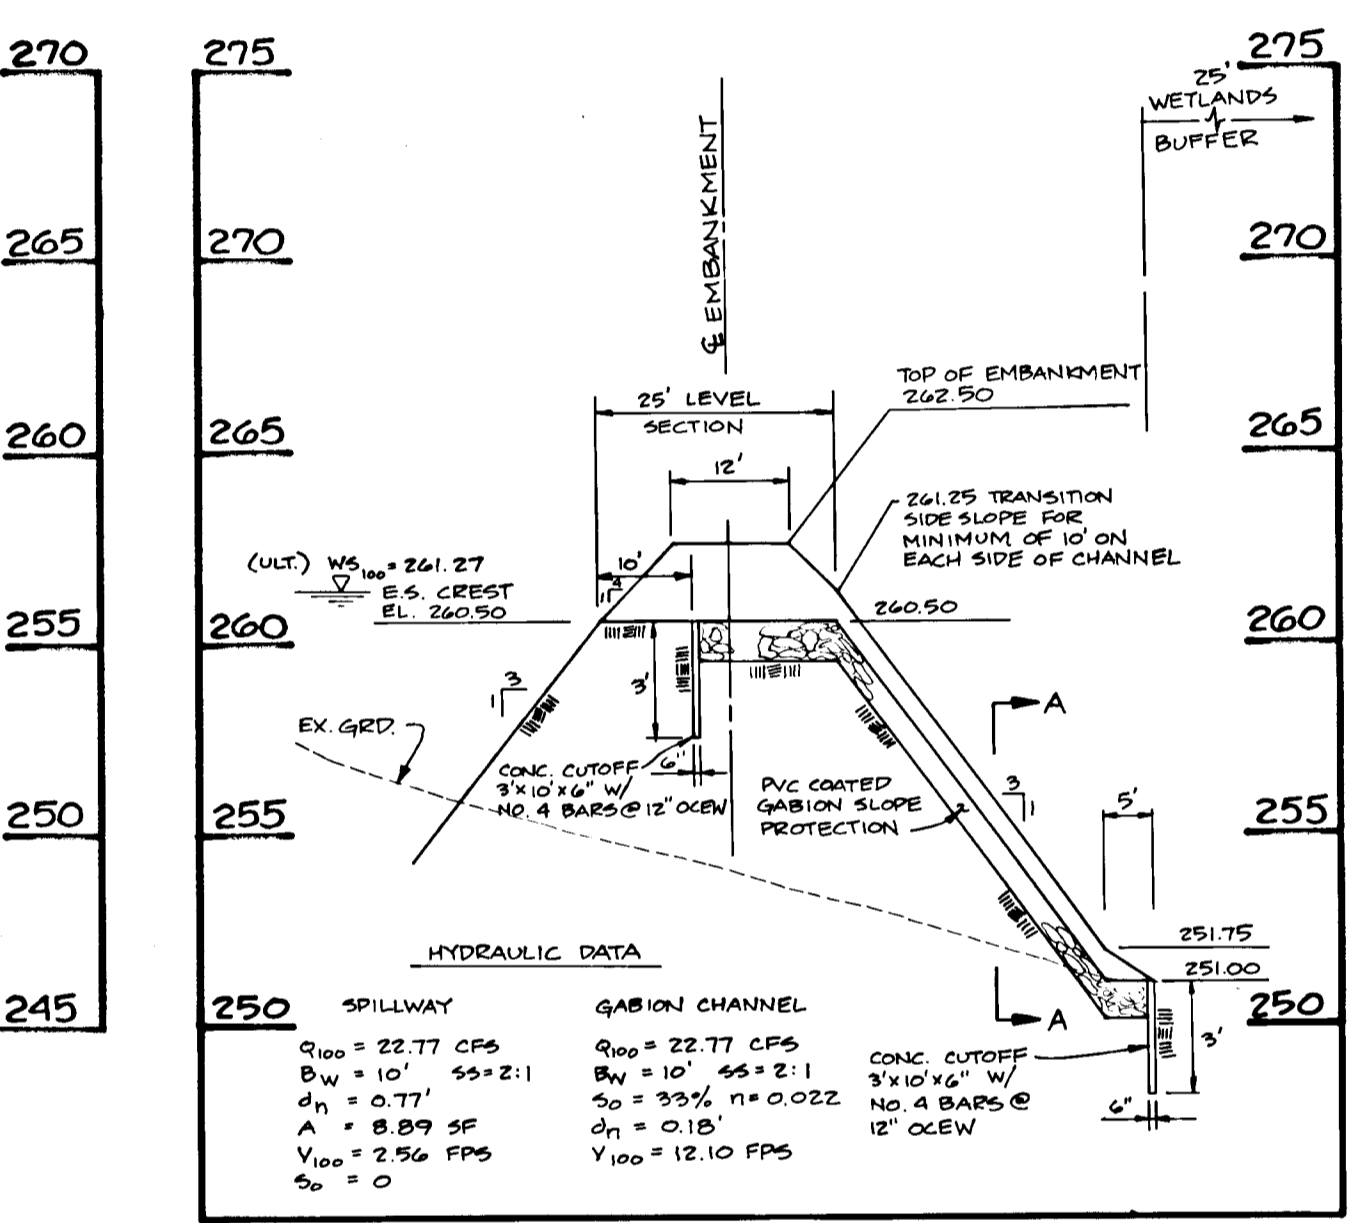 270
265
260
255
250
245
275
270
265
260
255
250
275
270
265
260
255
250
25'
WETLANDS
BUFFER
℄ EMBANKMENT
TOP OF EMBANKMENT
262.50
25' LEVEL
SECTION
12'
261.25 TRANSITION
SIDE SLOPE FOR
MINIMUM OF 10' ON
EACH SIDE OF CHANNEL
(ULT.) WS100 = 261.27
E.S. CREST
EL. 260.50
10'
4
1
260.50
3
1
3'
EX. GRD.
6"
CONC. CUTOFF
3'x10'x6" W/
NO. 4 BARS @ 12" OCEW
PVC COATED
GABION SLOPE
PROTECTION
A
3
1
5'
251.75
251.00
A
3'
CONC. CUTOFF
3'x10'x6" W/
NO. 4 BARS @
12" OCEW
6"
HYDRAULIC DATA
SPILLWAY
Q100 = 22.77 CFS
BW = 10' SS = 2:1
dn = 0.77'
A = 8.89 SF
V100 = 2.56 FPS
So = 0
GABION CHANNEL
Q100 = 22.77 CFS
BW = 10' SS = 2:1
So = 33% n = 0.022
dn = 0.18'
V100 = 12.10 FPS